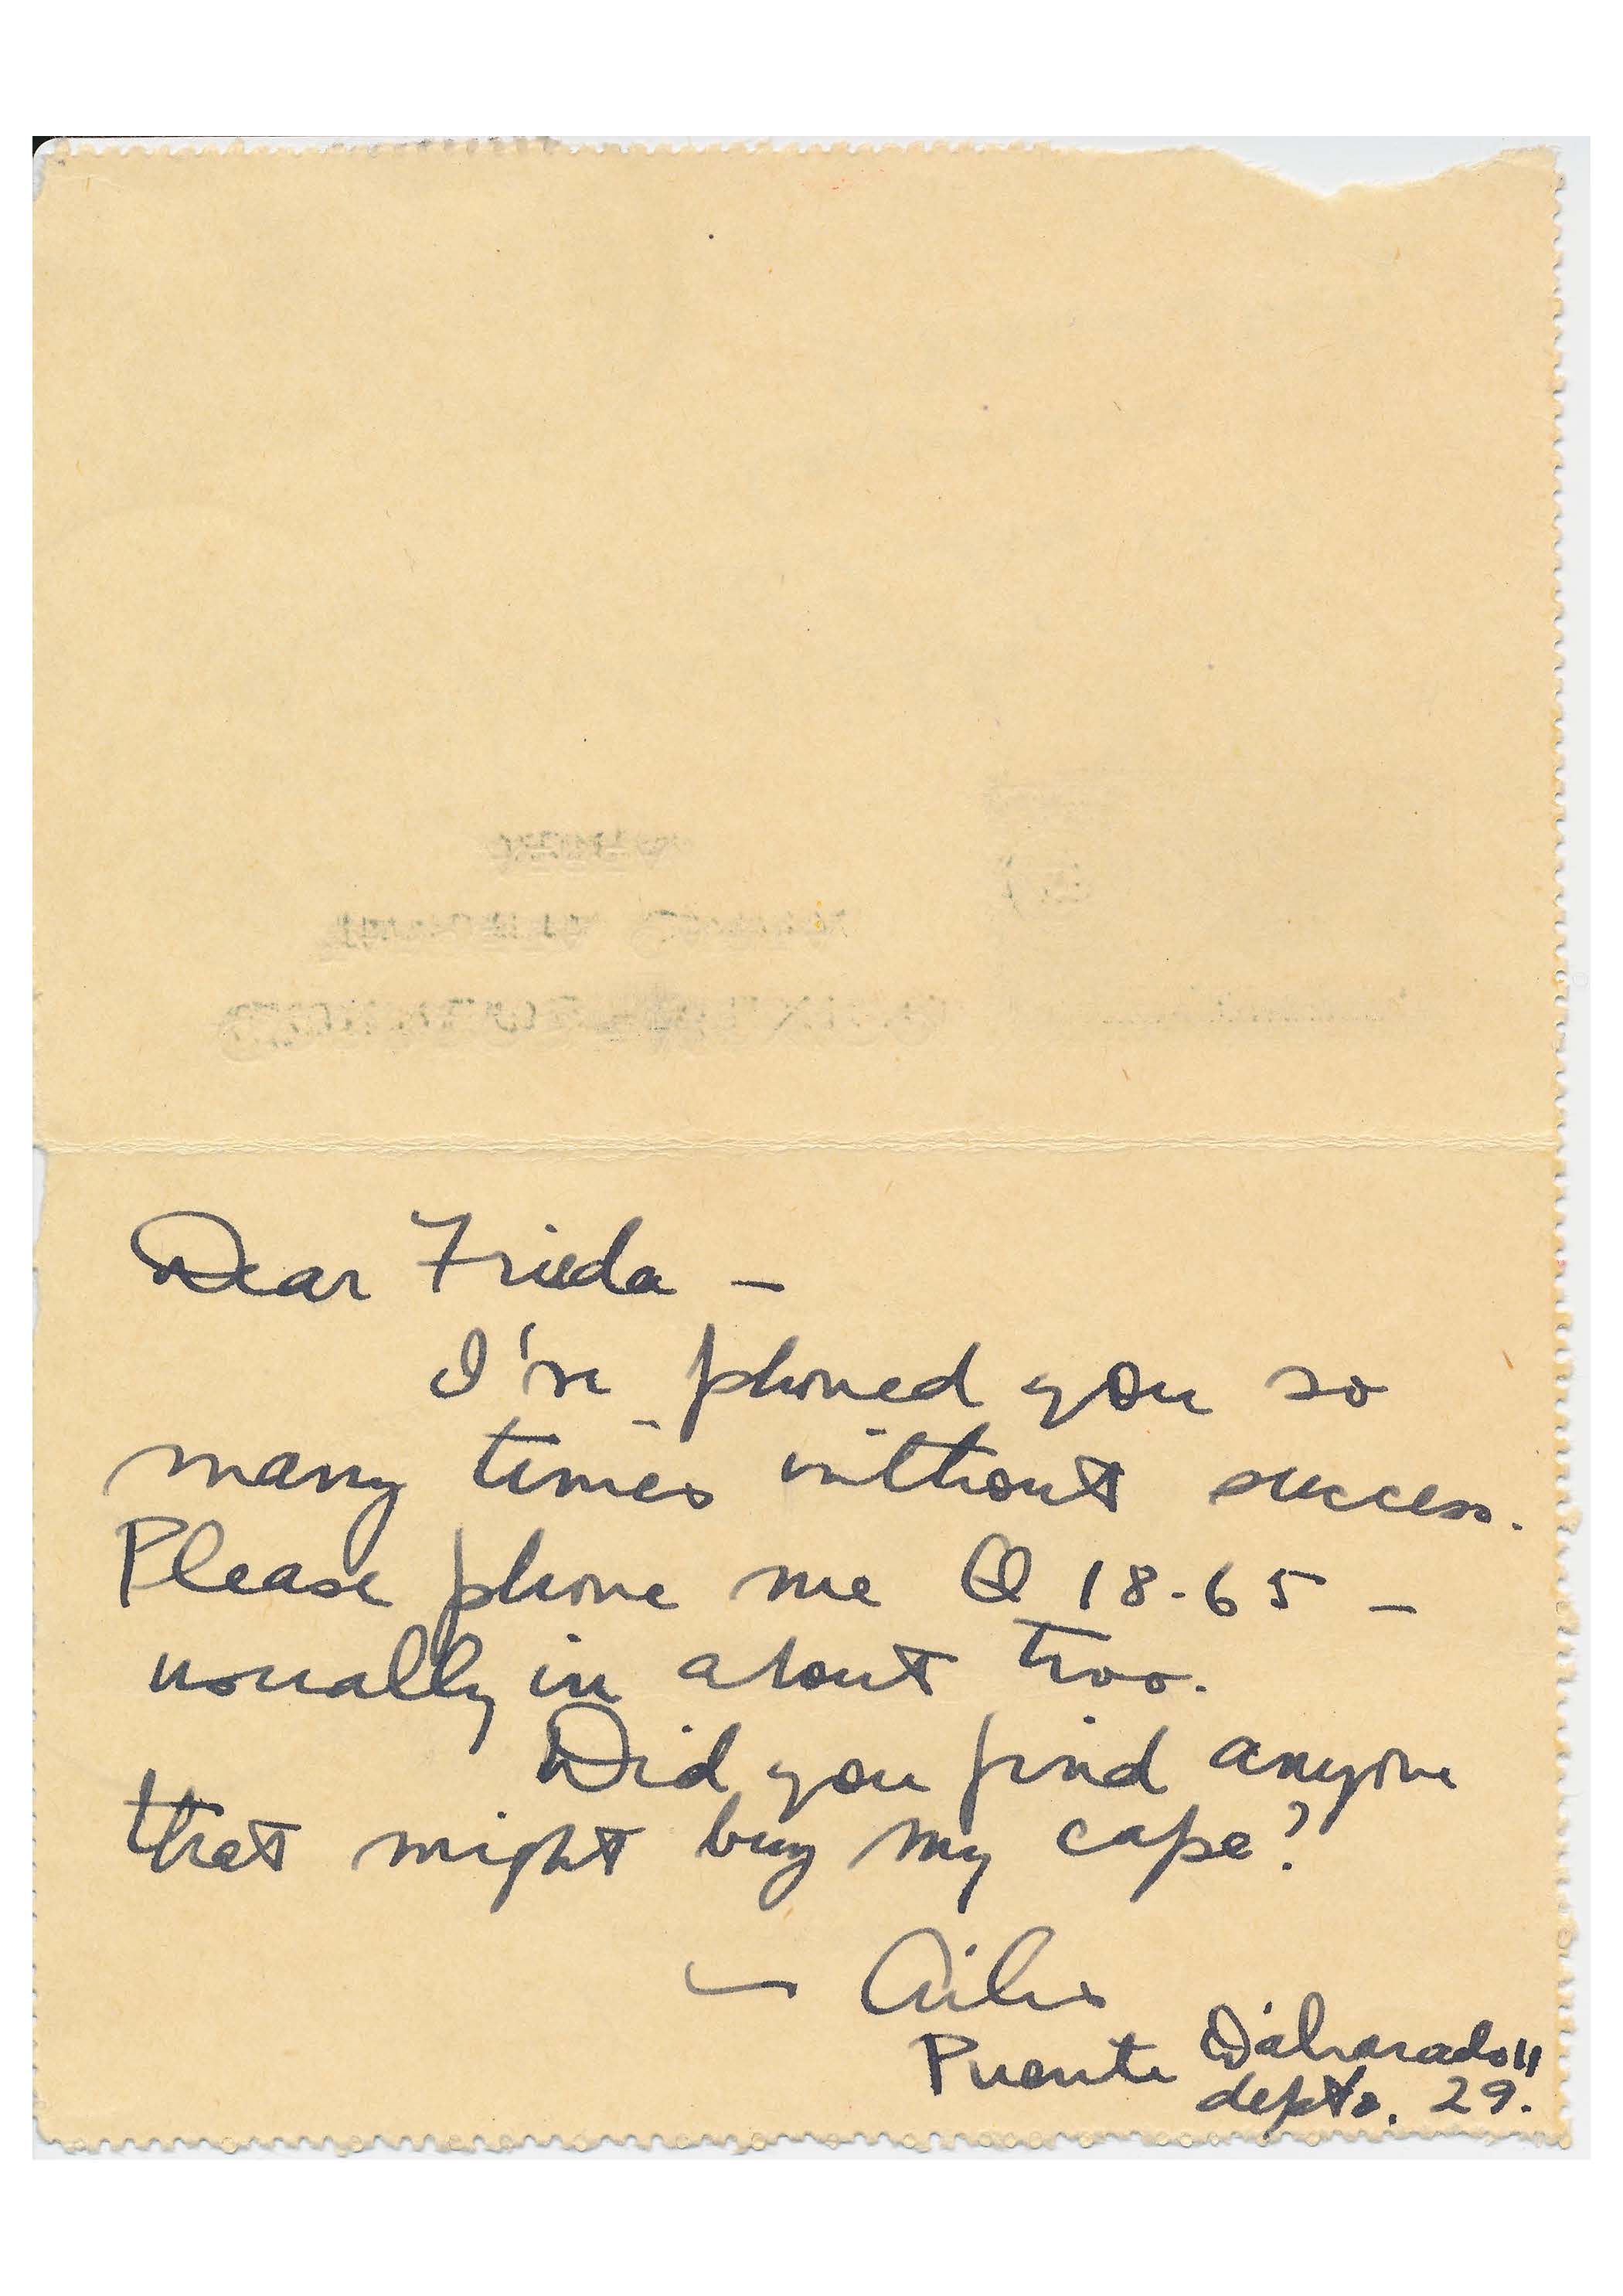 Dear Frieda –
I've phoned you so
many times without success.
Please phone me Q 18-65 –
usually in about two.
Did you find anyone
that might buy my cape?
Puente D'alvarado 11
depto. 29.